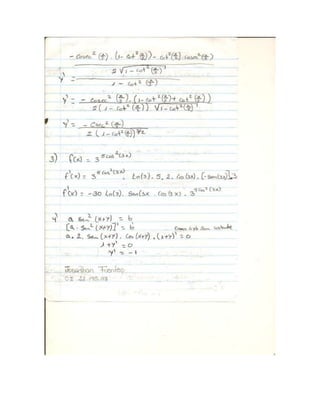 - Cosec² (x/2) · (1 - Cot²(x/2)) - Cot²(x/2) · Cosec²(x/2)
2 √1 - Cot²(x/2)
y' =
1 - Cot² (x/2)
y' = - Cosec² (x/2) · (1 - Cot²(x/2) + Cot²(x/2))
2 (1 - Cot²(x/2)) √1 - Cot²(x/2)
y' = - Cosec² (x/2)
2 (1 - Cot²(x/2))^3/2
3) f(x) = 3^5cos²(3x)
f'(x) = 3^5cos²(3x) · Ln(3). 5. 2. Cos(3x). [-Sen(3x)].3
f'(x) = -30 Ln(3). Sen(3x · Cos(3x). 3^5cos²(3x)
4) a Sen² (x+y) = b
[a · Sen² (x+y)]' = b
a. 2. Sen (x+y). Cos (x+y). (1+y)' = 0
1 + y' = 0
y' = -1